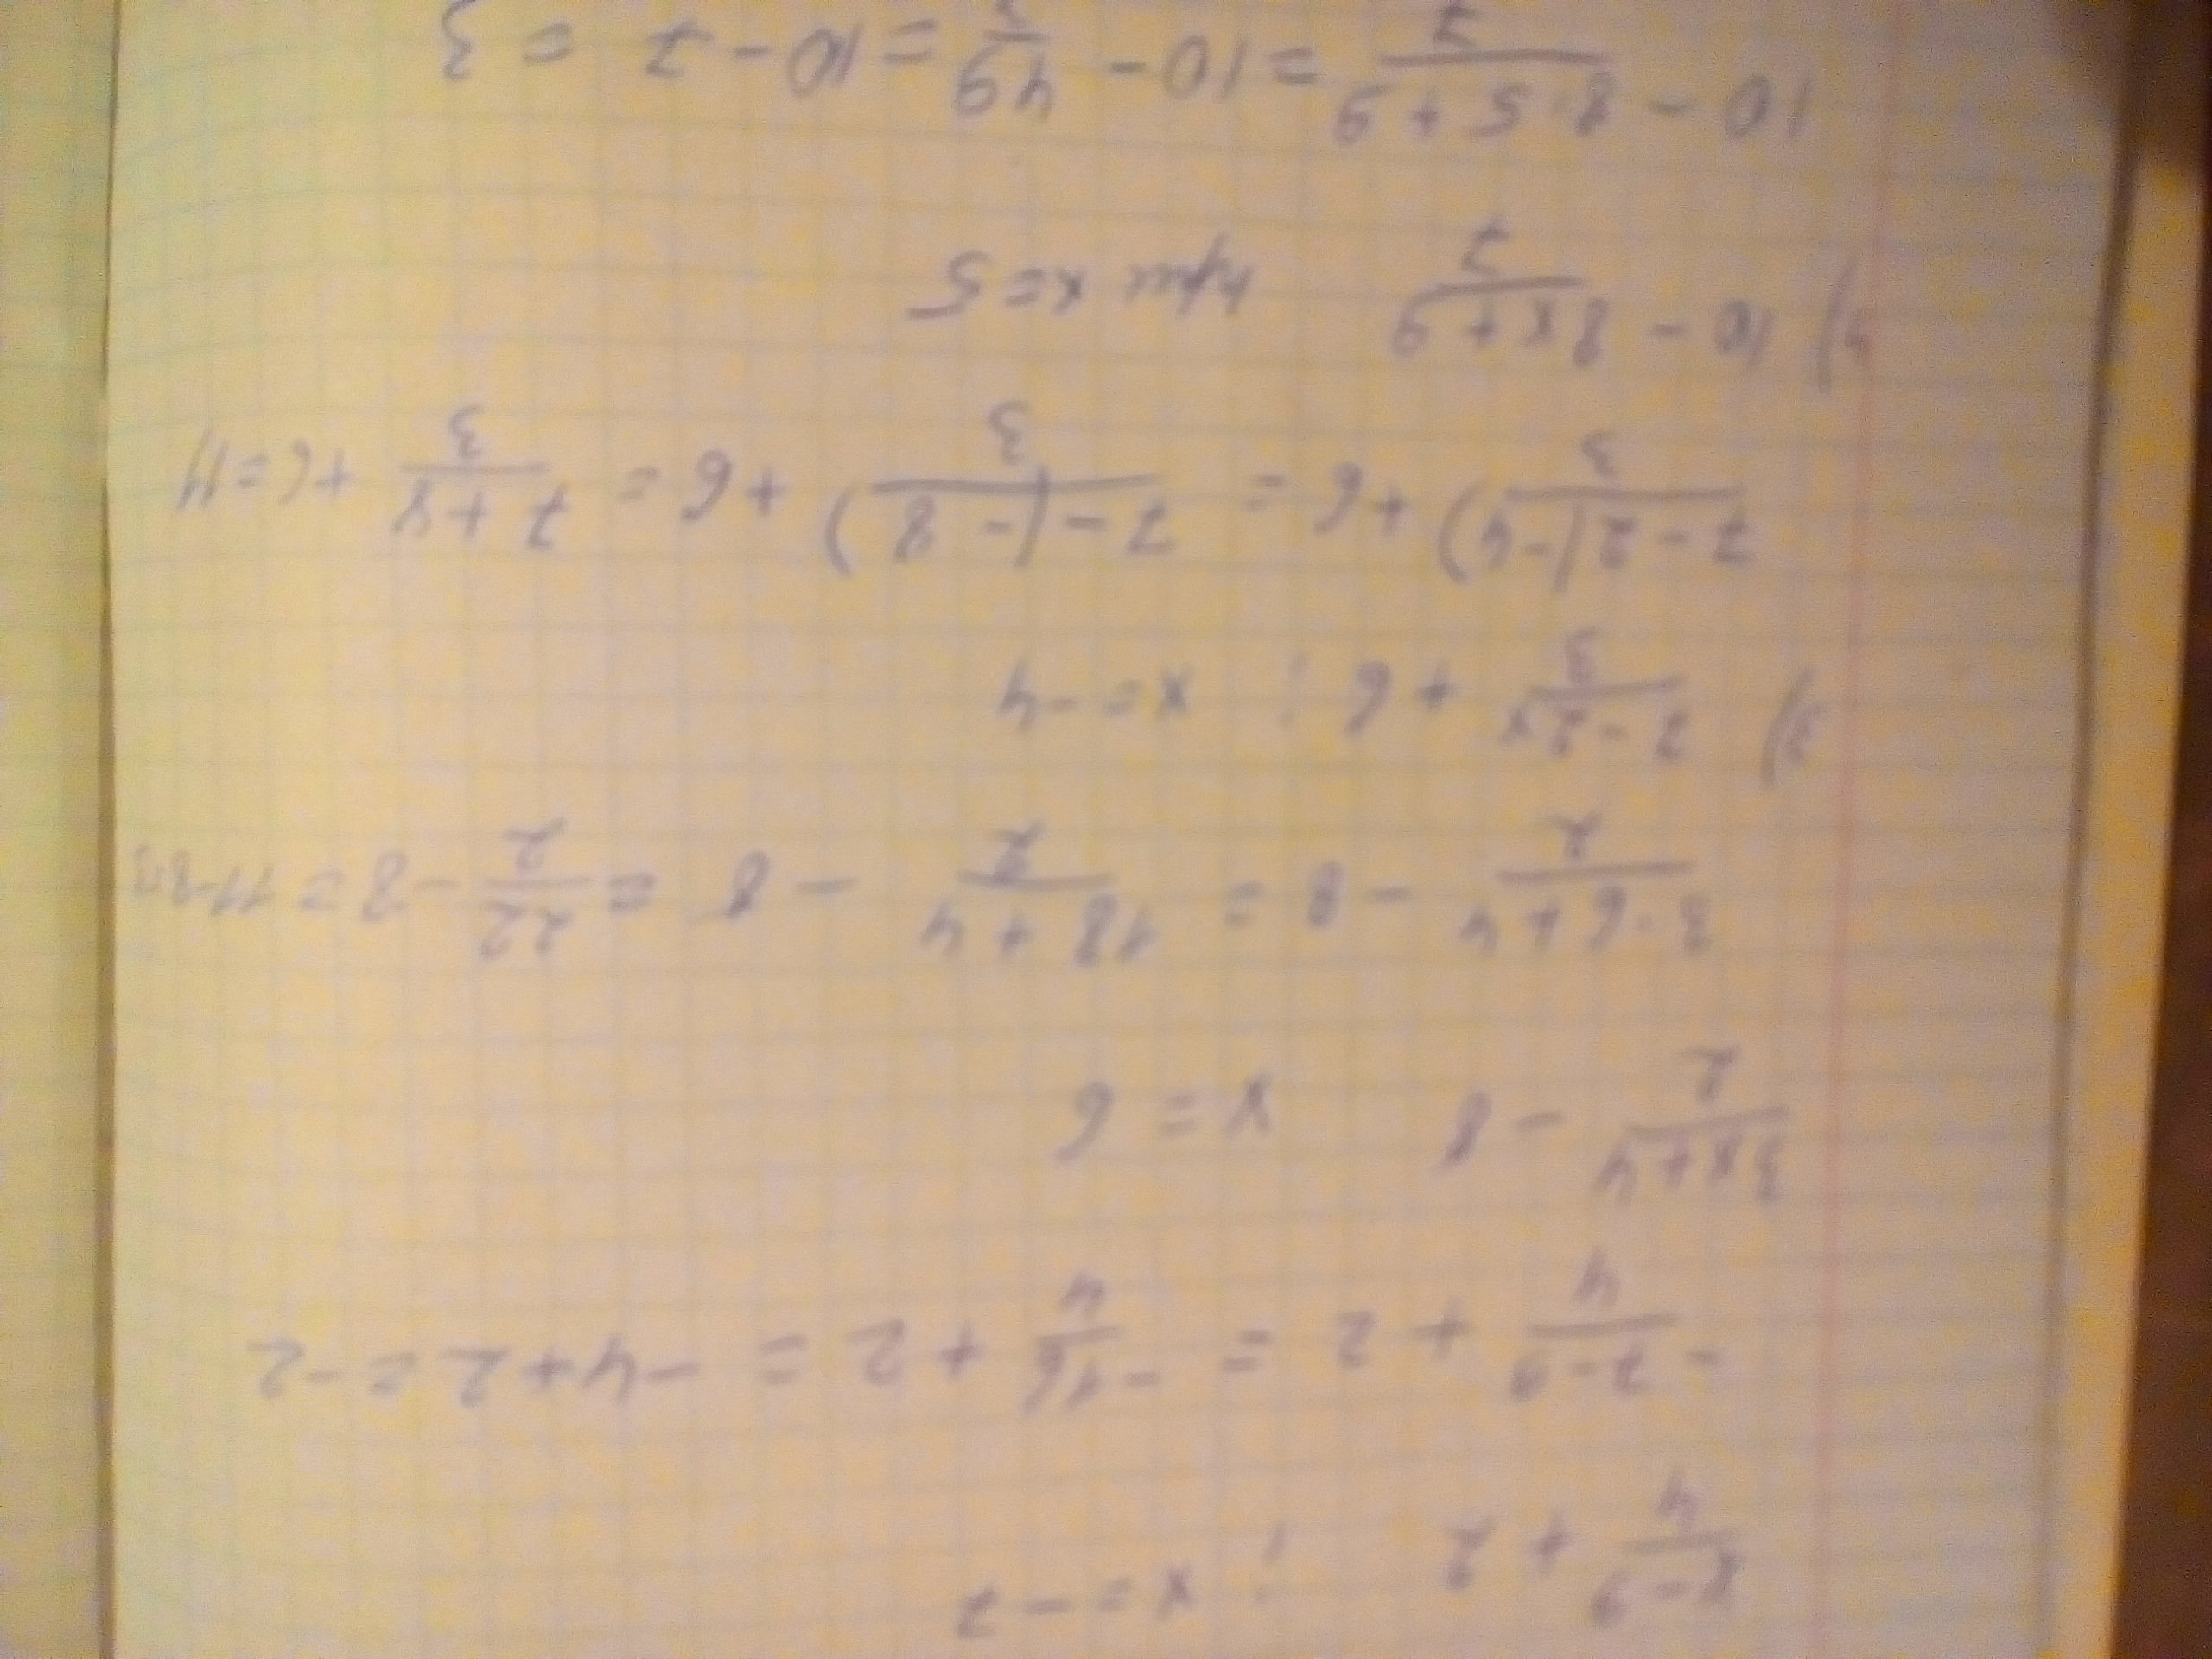 x-9/4 + 2 ; x = -7
-7-9/4 + 2 = -16/4 + 2 = -4+2 = -2
3x+4/2 - 8 x = 6
3·6+4/2 - 8 = 18+4/2 - 8 = 22/2 - 8 = 11-8=3
3) 7-2x/3 + 6 ; x = -4
7-2(-4)/3 + 6 = 7-(-8)/3 + 6 = 7+8/3 + 6 = 11
4) 10 - 8x+9/7 при x = 5
10 - 8·5+9/7 = 10 - 49/7 = 10-7 = 3